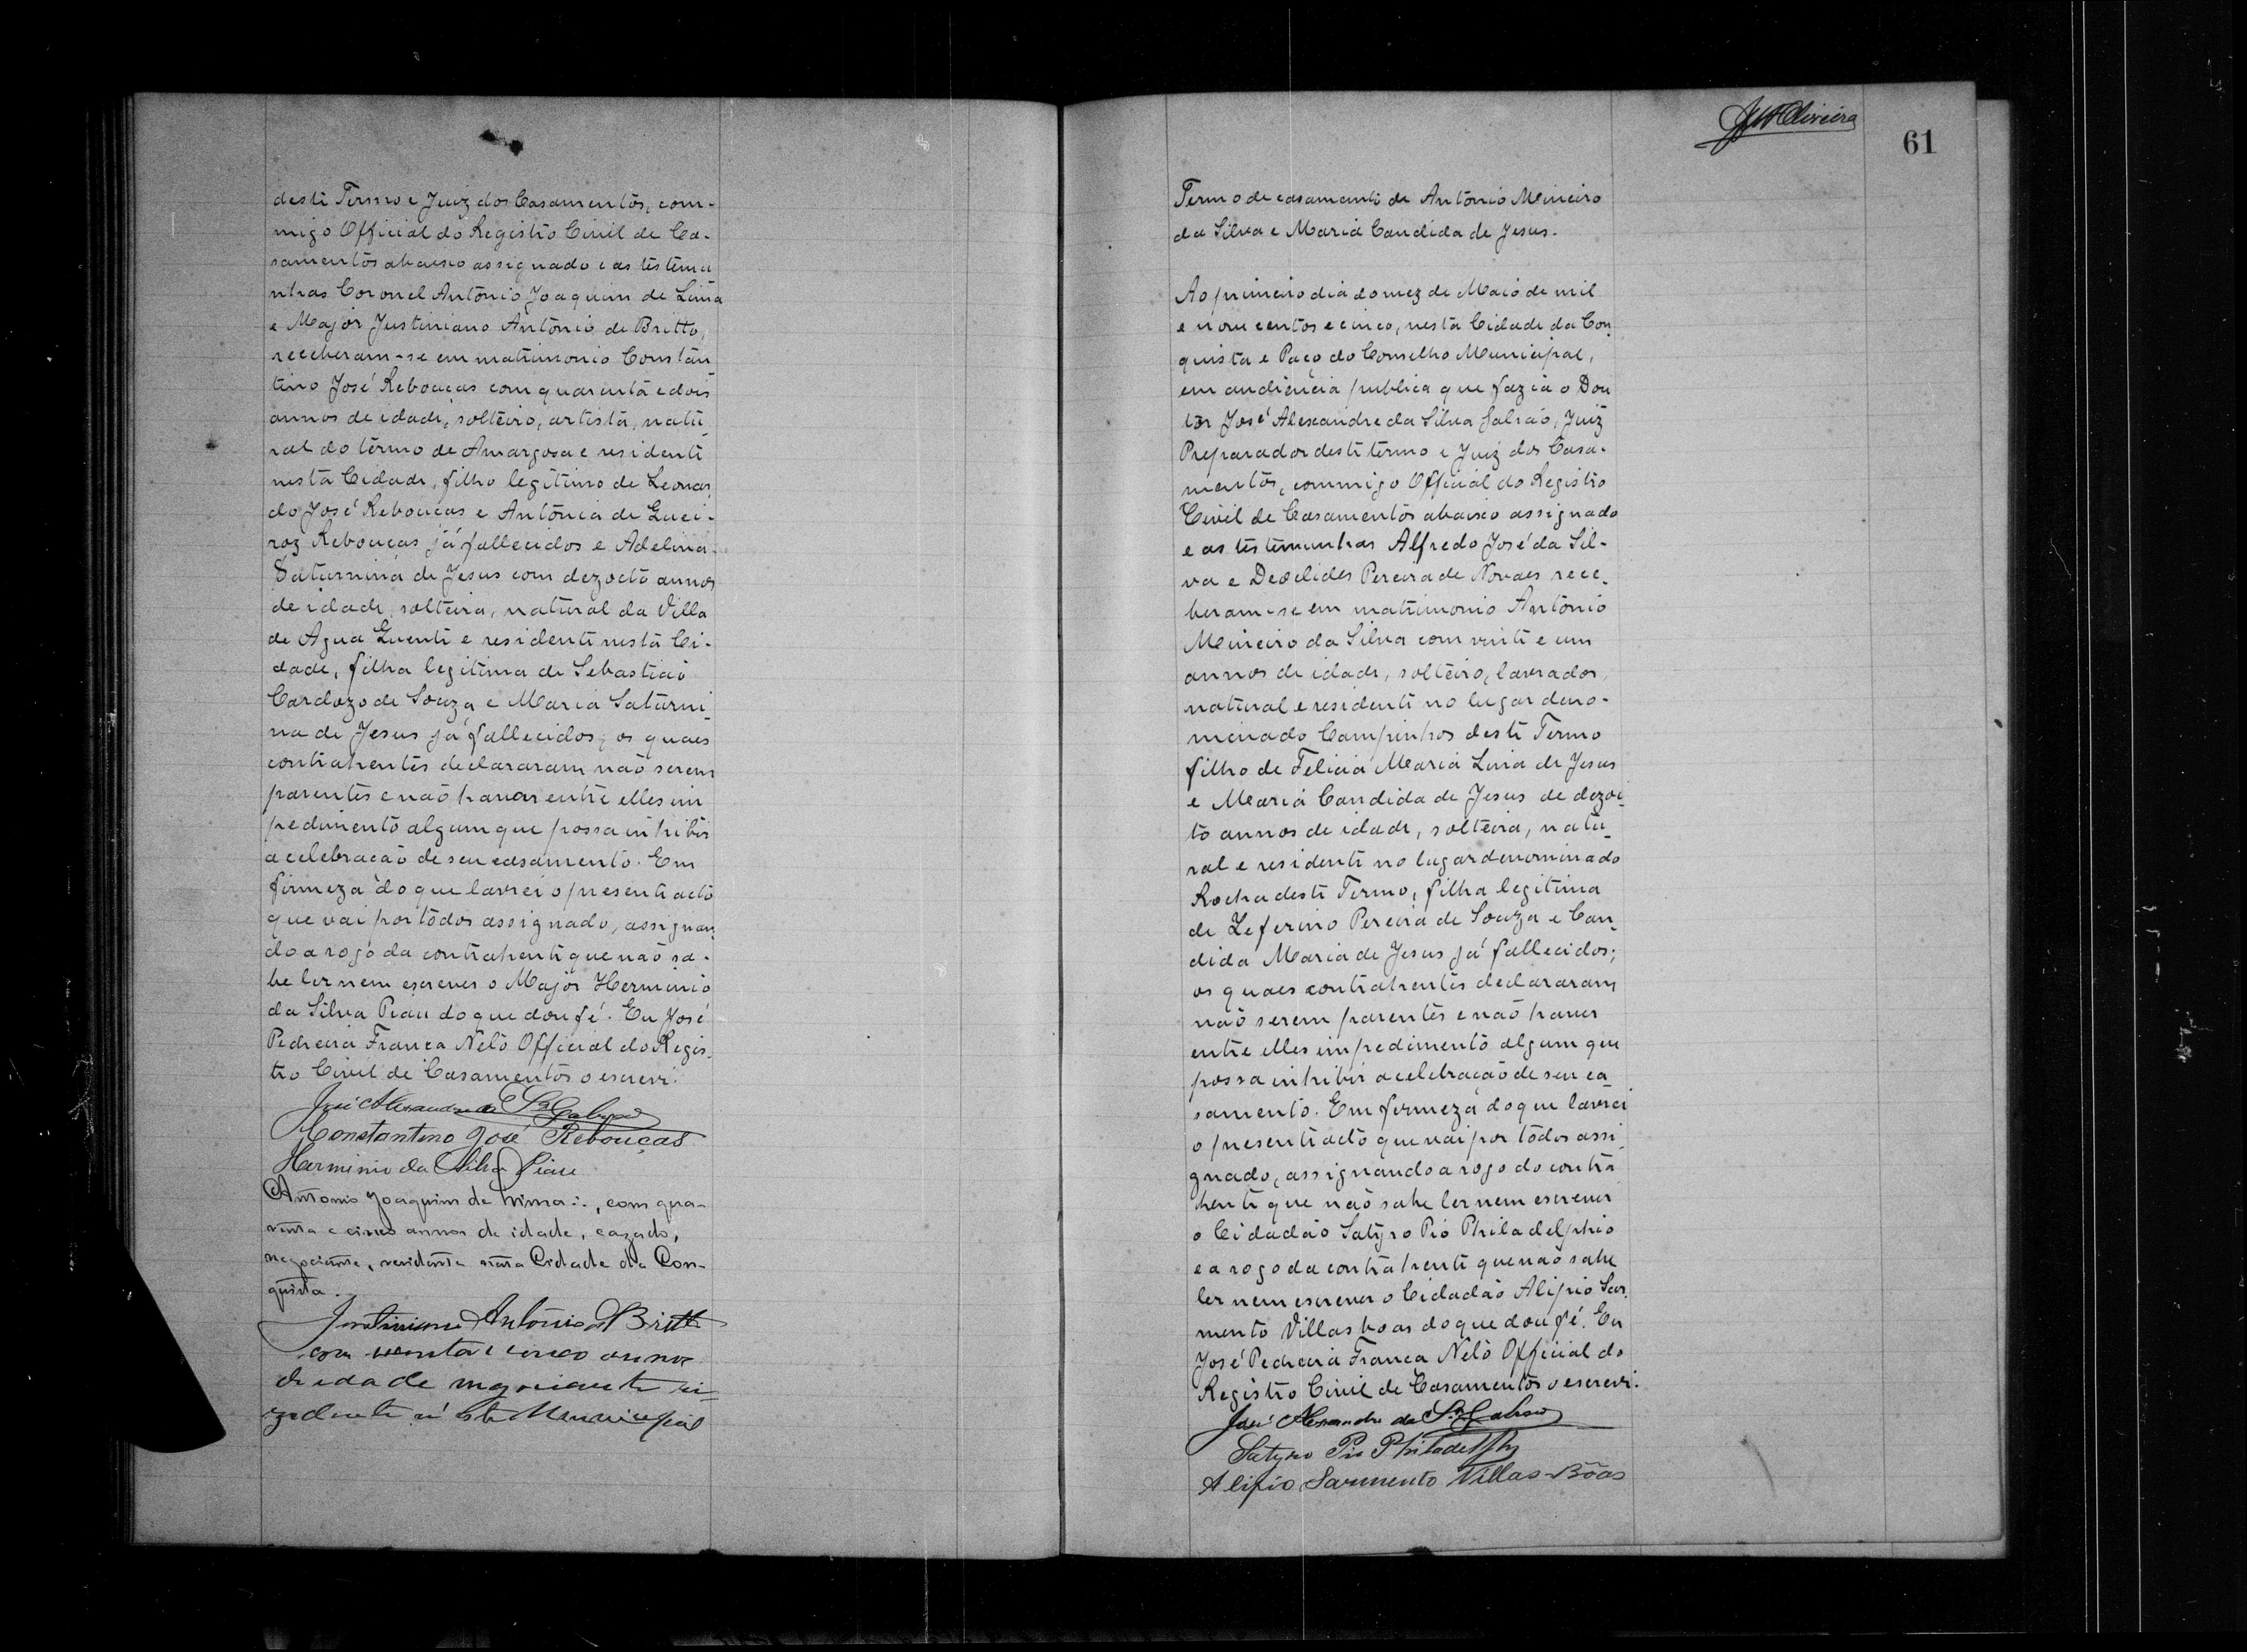 deste Termo e Juiz dos Casamentos, com-
migo Official do Registro Civil de Ca-
samentos abaixo assignado e as testemu
nhas Coronel Antonio Joaquim de Lima
e Major Justiniano Antonio de Britto,
receberam-se em matrimonio Constan
tino José Rebouças com quarenta e dois
annos de idade, solteiro, artista, natu
ral do termo de Amargosa e residente
nesta Cidade, filho legitimo de Leonar
do José Rebouças e Antonia de Quei-
roz Rebouças já fallecidos e Adelina
Saturnina de Jesus com dezoito annos
de idade, solteira, natural da Villa
de Agua Quente e residente nesta Ci-
dade, filha legitima de Sebastião
Cardozo de Souza e Maria Saturni
na de Jesus já fallecidos; os quaes
contrahentes declararam não serem
parentes e não haver entre elles im
pedimento algum que possa inhibir
a celebração de seu casamento. Em
firmeza do que lavrei o presente acto
que vai por todos assignado, assignan
do a rogo da contrahente que não sa-
be ler nem escrever o Major Herminio
da Silva Piau do que dou fé. Eu José
Pedreira França Netô Official do Regis
tro Civil de Casamentos o escrevi.
José Alexandre da Sª Galvão
Constantino José Rebouças
Herminio da Silva Piau
Antonio Joaquim de Lima, com qua-
renta e cinco annos de idade, cazado,
negociante, residente nesta Cidade da Con-
quista.
Justiniano Antonio de Britto
com e cinco annos
de edade negociante ri
zidente n'este Municipio
JM Oliveira
61
Termo de casamento de Antonio Mineiro
da Silva e Maria Candida de Jesus.
Ao primeiro dia do mez de Maio de mil
e nove centos e cinco, nesta Cidade da Con
quista e Paço do Conselho Municipal,
em audiencia publica que fazia o Dou
tor José Alexandre da Silva Galvão, Juiz
Preparador deste termo e Juiz dos Casa-
mentos, commigo Official do Registro
Civil de Casamentos abaixo assignado
e as testemunhas Alfredo José da Sil-
va e Deoclides Pereira de Novaes rece-
beram-se em matrimonio Antonio
Mineiro da Silva com vinte e um
annos de idade, solteiro, lavrador,
natural e residente no lugar deno-
minado Campinhos deste Termo
filho de Felicia Maria Lina de Jesus
e Maria Candida de Jesus de dezoi
to annos de idade, solteira, natu
ral e residente no lugar denominado
Rocha deste Termo, filha legitima
de Zeferino Pereira de Souza e Can
dida Maria de Jesus já fallecidos;
os quaes contrahentes declararam
não serem parentes e não haver
entre elles impedimento algum que
possa inhibir a celebração de seu ca
samento. Em firmeza do que lavrei
o presente acto que vai por todos assi
gnado, assignando a rogo do contra
hente que não sabe ler nem escrever
o Cidadão Satyro Pio Philadelphio
e a rogo da contrahente que não sabe
ler nem escrever o Cidadão Alipio Sar
mento Villas boas do que dou fé. Eu
José Pedreira França Netô Official do
Registro Civil de Casamentos o escrevi.
José Alexandre da Sª Galvão
Satyro Pio Philadelphio
Alipio Sarmento Villas-Bôas